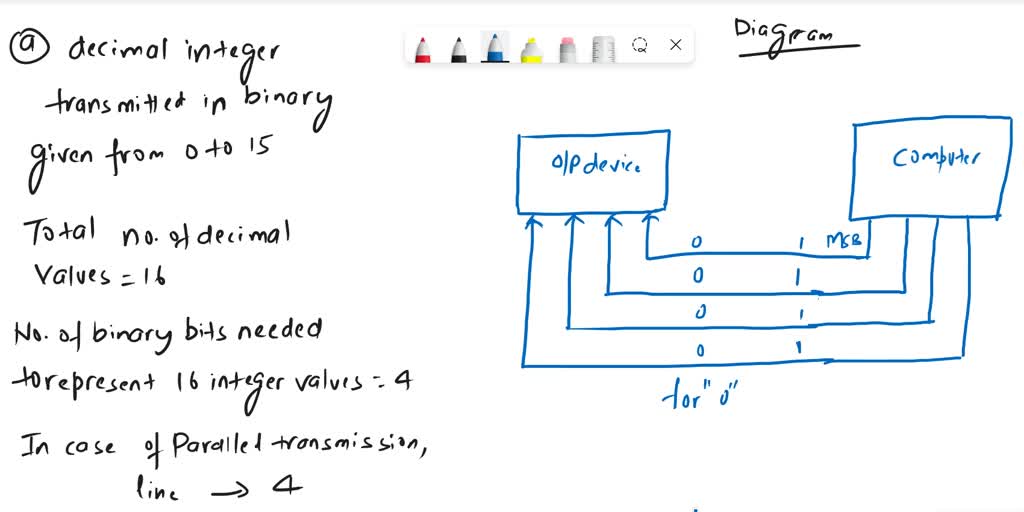 (a) decimal integer
transmitted in binary
given from 0 to 15
Total no. of decimal
Values = 16
No. of binary bits needed
to represent 16 integer values = 4
In case of Paralled transmission,
line → 4
Diagram
O/P device
Computer
0 1 MSB
0 1
0 1
0 1
for "0"